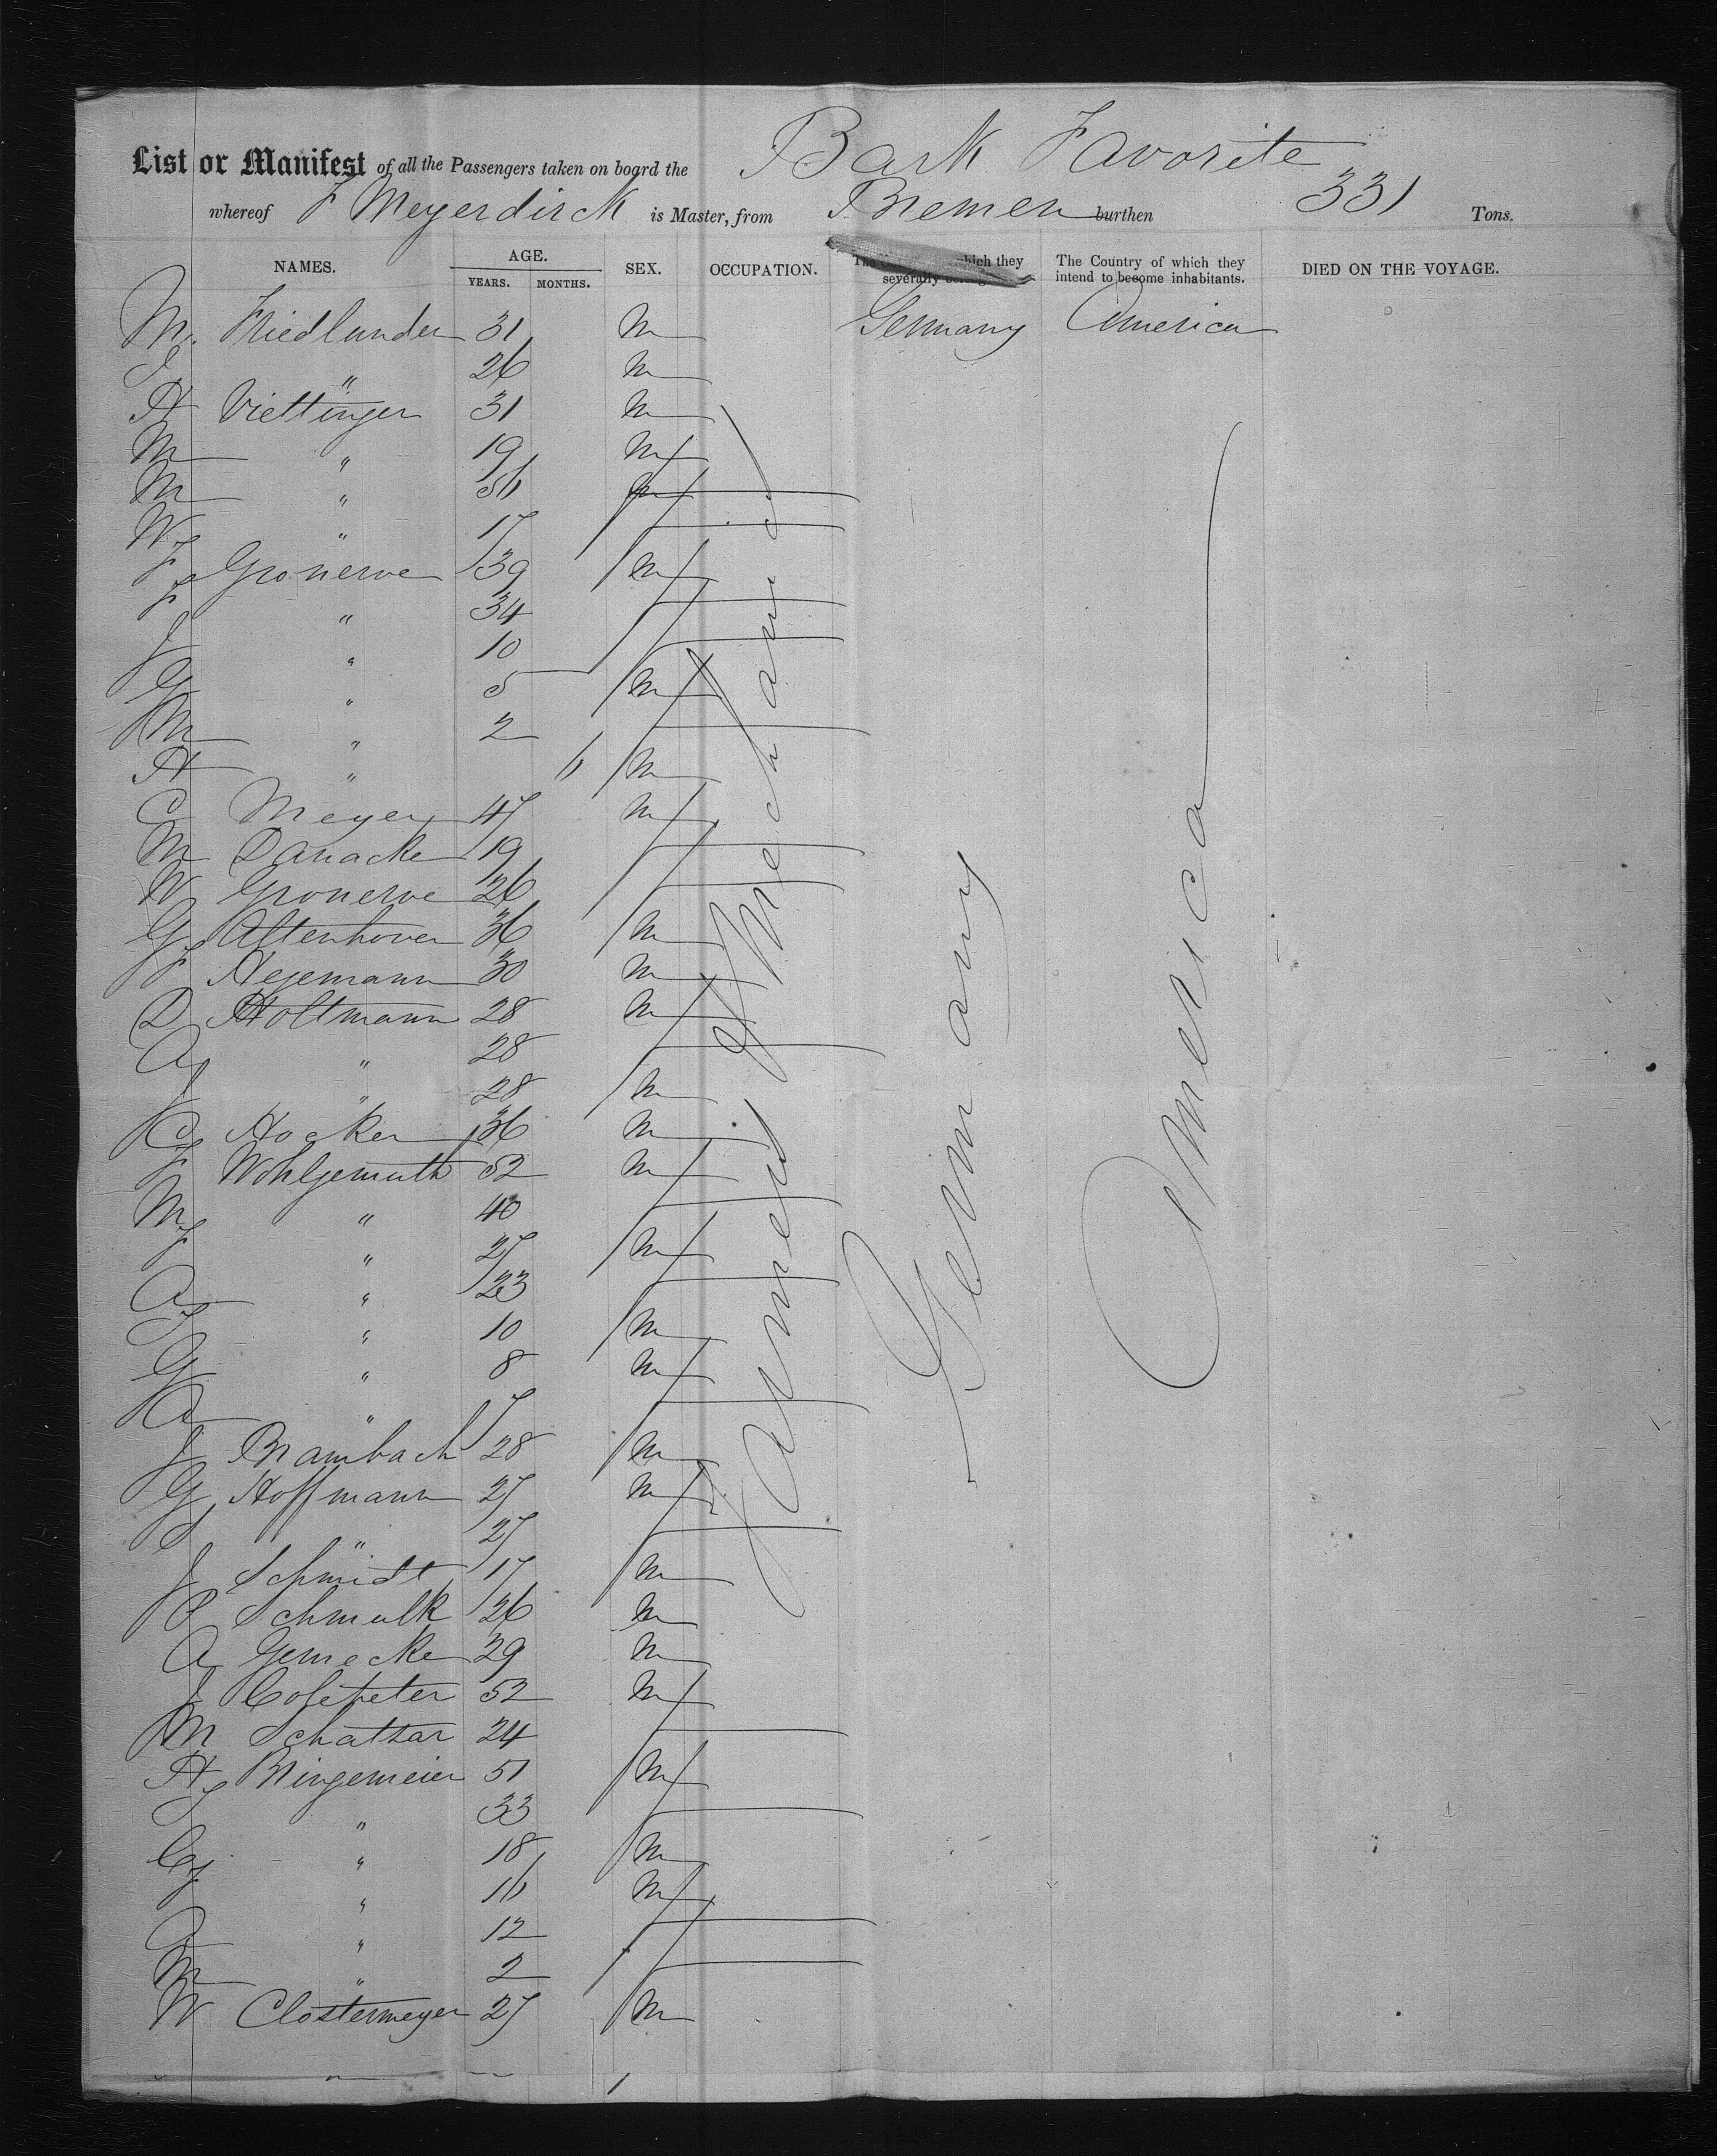 List or Manifest of all the Passengers taken on board the Bark Favorite
whereof F Meyerdirck is Master, from Bremen burthen 331 Tons.
NAMES. AGE. YEARS. MONTHS. SEX. OCCUPATION. which they severally belong The Country of which they intend to become inhabitants. DIED ON THE VOYAGE.
M. Friedlander 31 m Germany America
J " 26 m
H Viettinger 31 m
M " 19 m
M " 56 f
W " 17 f
F Gronerve 39 m
F " 34 f
J " 10 f
G " 5 m
M " 2 f
H " 6 m
C Meyer 47 m
M Danacke 19 f
W Gronerve 26 f
G Altenhover 36 m
F Hegemann 30 m
D Holtmann 28 m
A " 28 f
J " 28 m
C Hocker 36 m
F Wohlgemuth 52 m
M " 40 f
F " 27 m
A " 23 f
F " 10 m
G " 8 m
A " 7 f
J Brambach 28 m
G Hoffmann 27 m
S " 27 f
J Schmidt 17 m
P Schmalk 26 m
A Gernecke 29 m
J Colepeter 52 m
M Schattar 24 f
H Bringemeier 51 m
S " 33 f
C " 18 m
F " 16 m
A " 12 f
M " 2 f
W Clostermeyer 27 m
Farmers & Mechanics
Germany
America